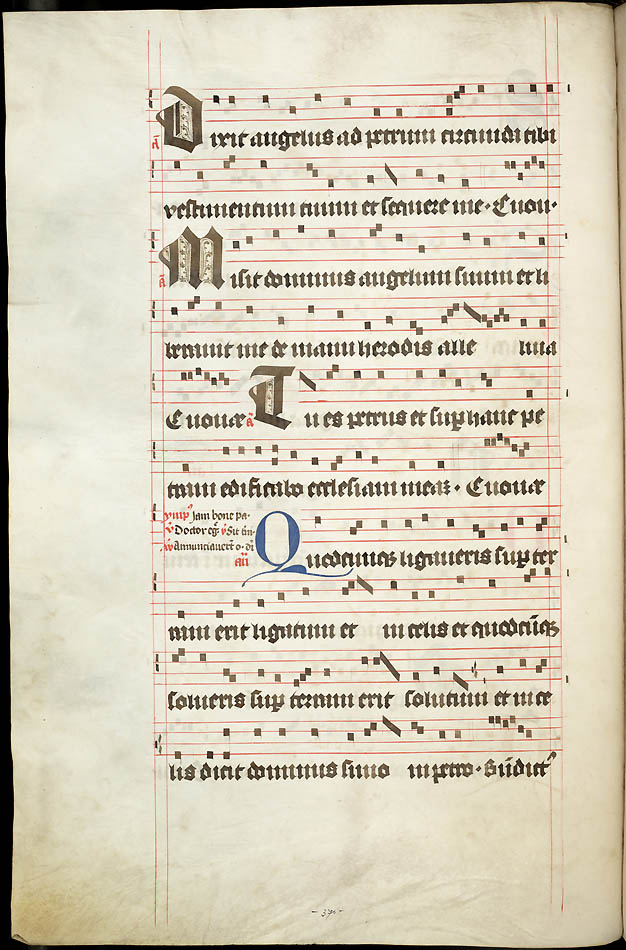 Dixit angelus ad petrum circumda tibi
vestimentum tuum et sequere me. Euou.
Misit dominus angelum suum et li
beravit me de manu herodis alle luia
Euouae Tu es petrus et sup hanc pe
tram edificabo ecclesiam meaz. Euouae
ymp9 Jam bone pa.
Doctor eg. Sit tin.
Annunciavert o. di
añ Quodcumqz ligaveris sup ter
ram erit ligatum et in celis et quodcūqz
solveris sup terram erit solutum et in ce
lis dicit dominus simo in petro. Bñdict9